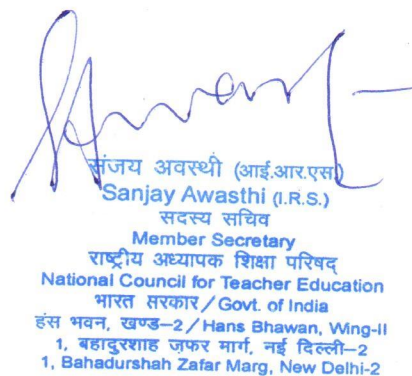 संजय अवस्थी (आई.आर.एस)
Sanjay Awasthi (I.R.S.)
सदस्य सचिव
Member Secretary
राष्ट्रीय अध्यापक शिक्षा परिषद्
National Council for Teacher Education
भारत सरकार / Govt. of India
हंस भवन, खण्ड–2 / Hans Bhawan, Wing-II
1, बहादुरशाह ज़फर मार्ग, नई दिल्ली–2
1, Bahadurshah Zafar Marg, New Delhi-2